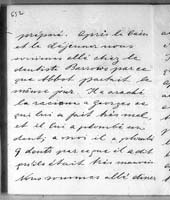 652
préparé. Après le bain
et le déjeuner nous
sommes allé chez le
dentiste Barrows parce
que Abbot partait le
même jour. Il a arraché
la racine à Georges ce
qui lui a fait très mal
et et lui a plombé une
dent; à moi il a plombé
9 dents parce que il a dit
qu'elles était très mauvais
Nous sommes allé diner